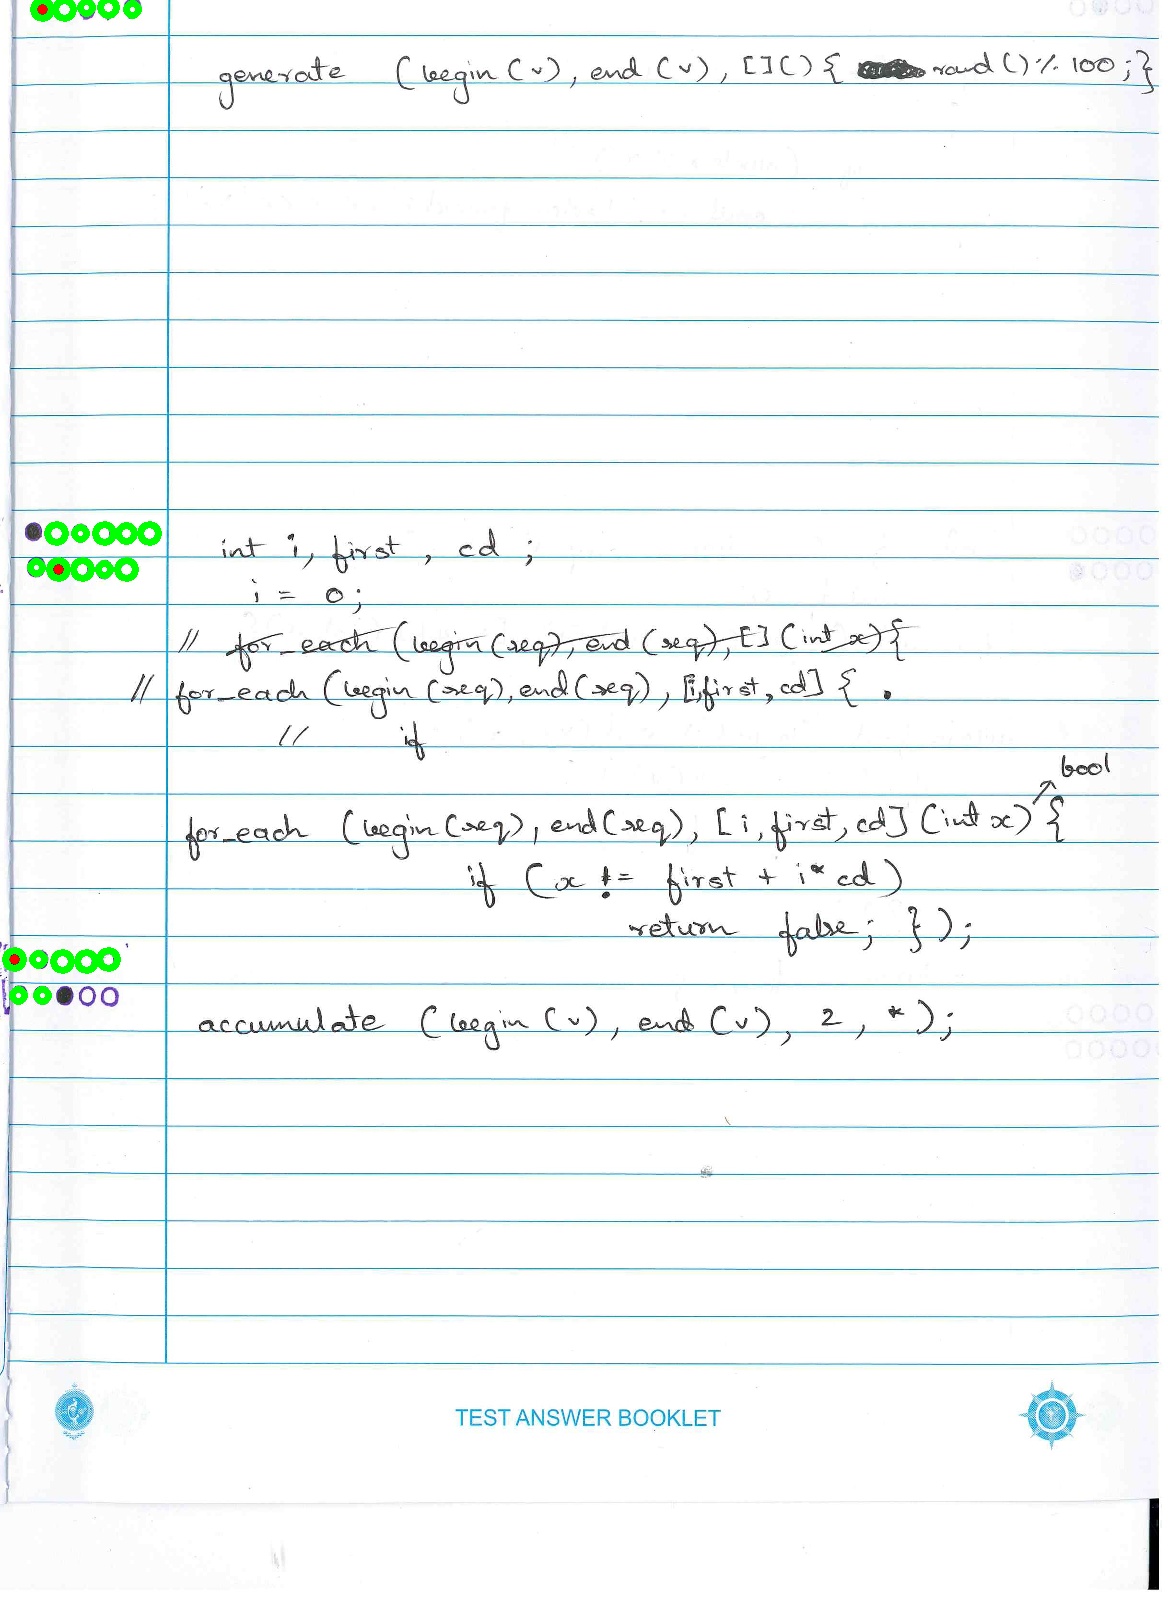 generate (begin(v), end(v), [](){ rand()% 100;}
int i, first, cd ;
i = 0;
// for_each (begin(seq), end(seq), [] (int x){
// for_each (begin(seq), end(seq), [i,first,cd] { .
// if
bool
for_each (begin(seq), end(seq), [i, first, cd] (int x) {
if (x != first + i* cd)
return false; });
accumulate (begin(v), end(v), 2, *);
TEST ANSWER BOOKLET